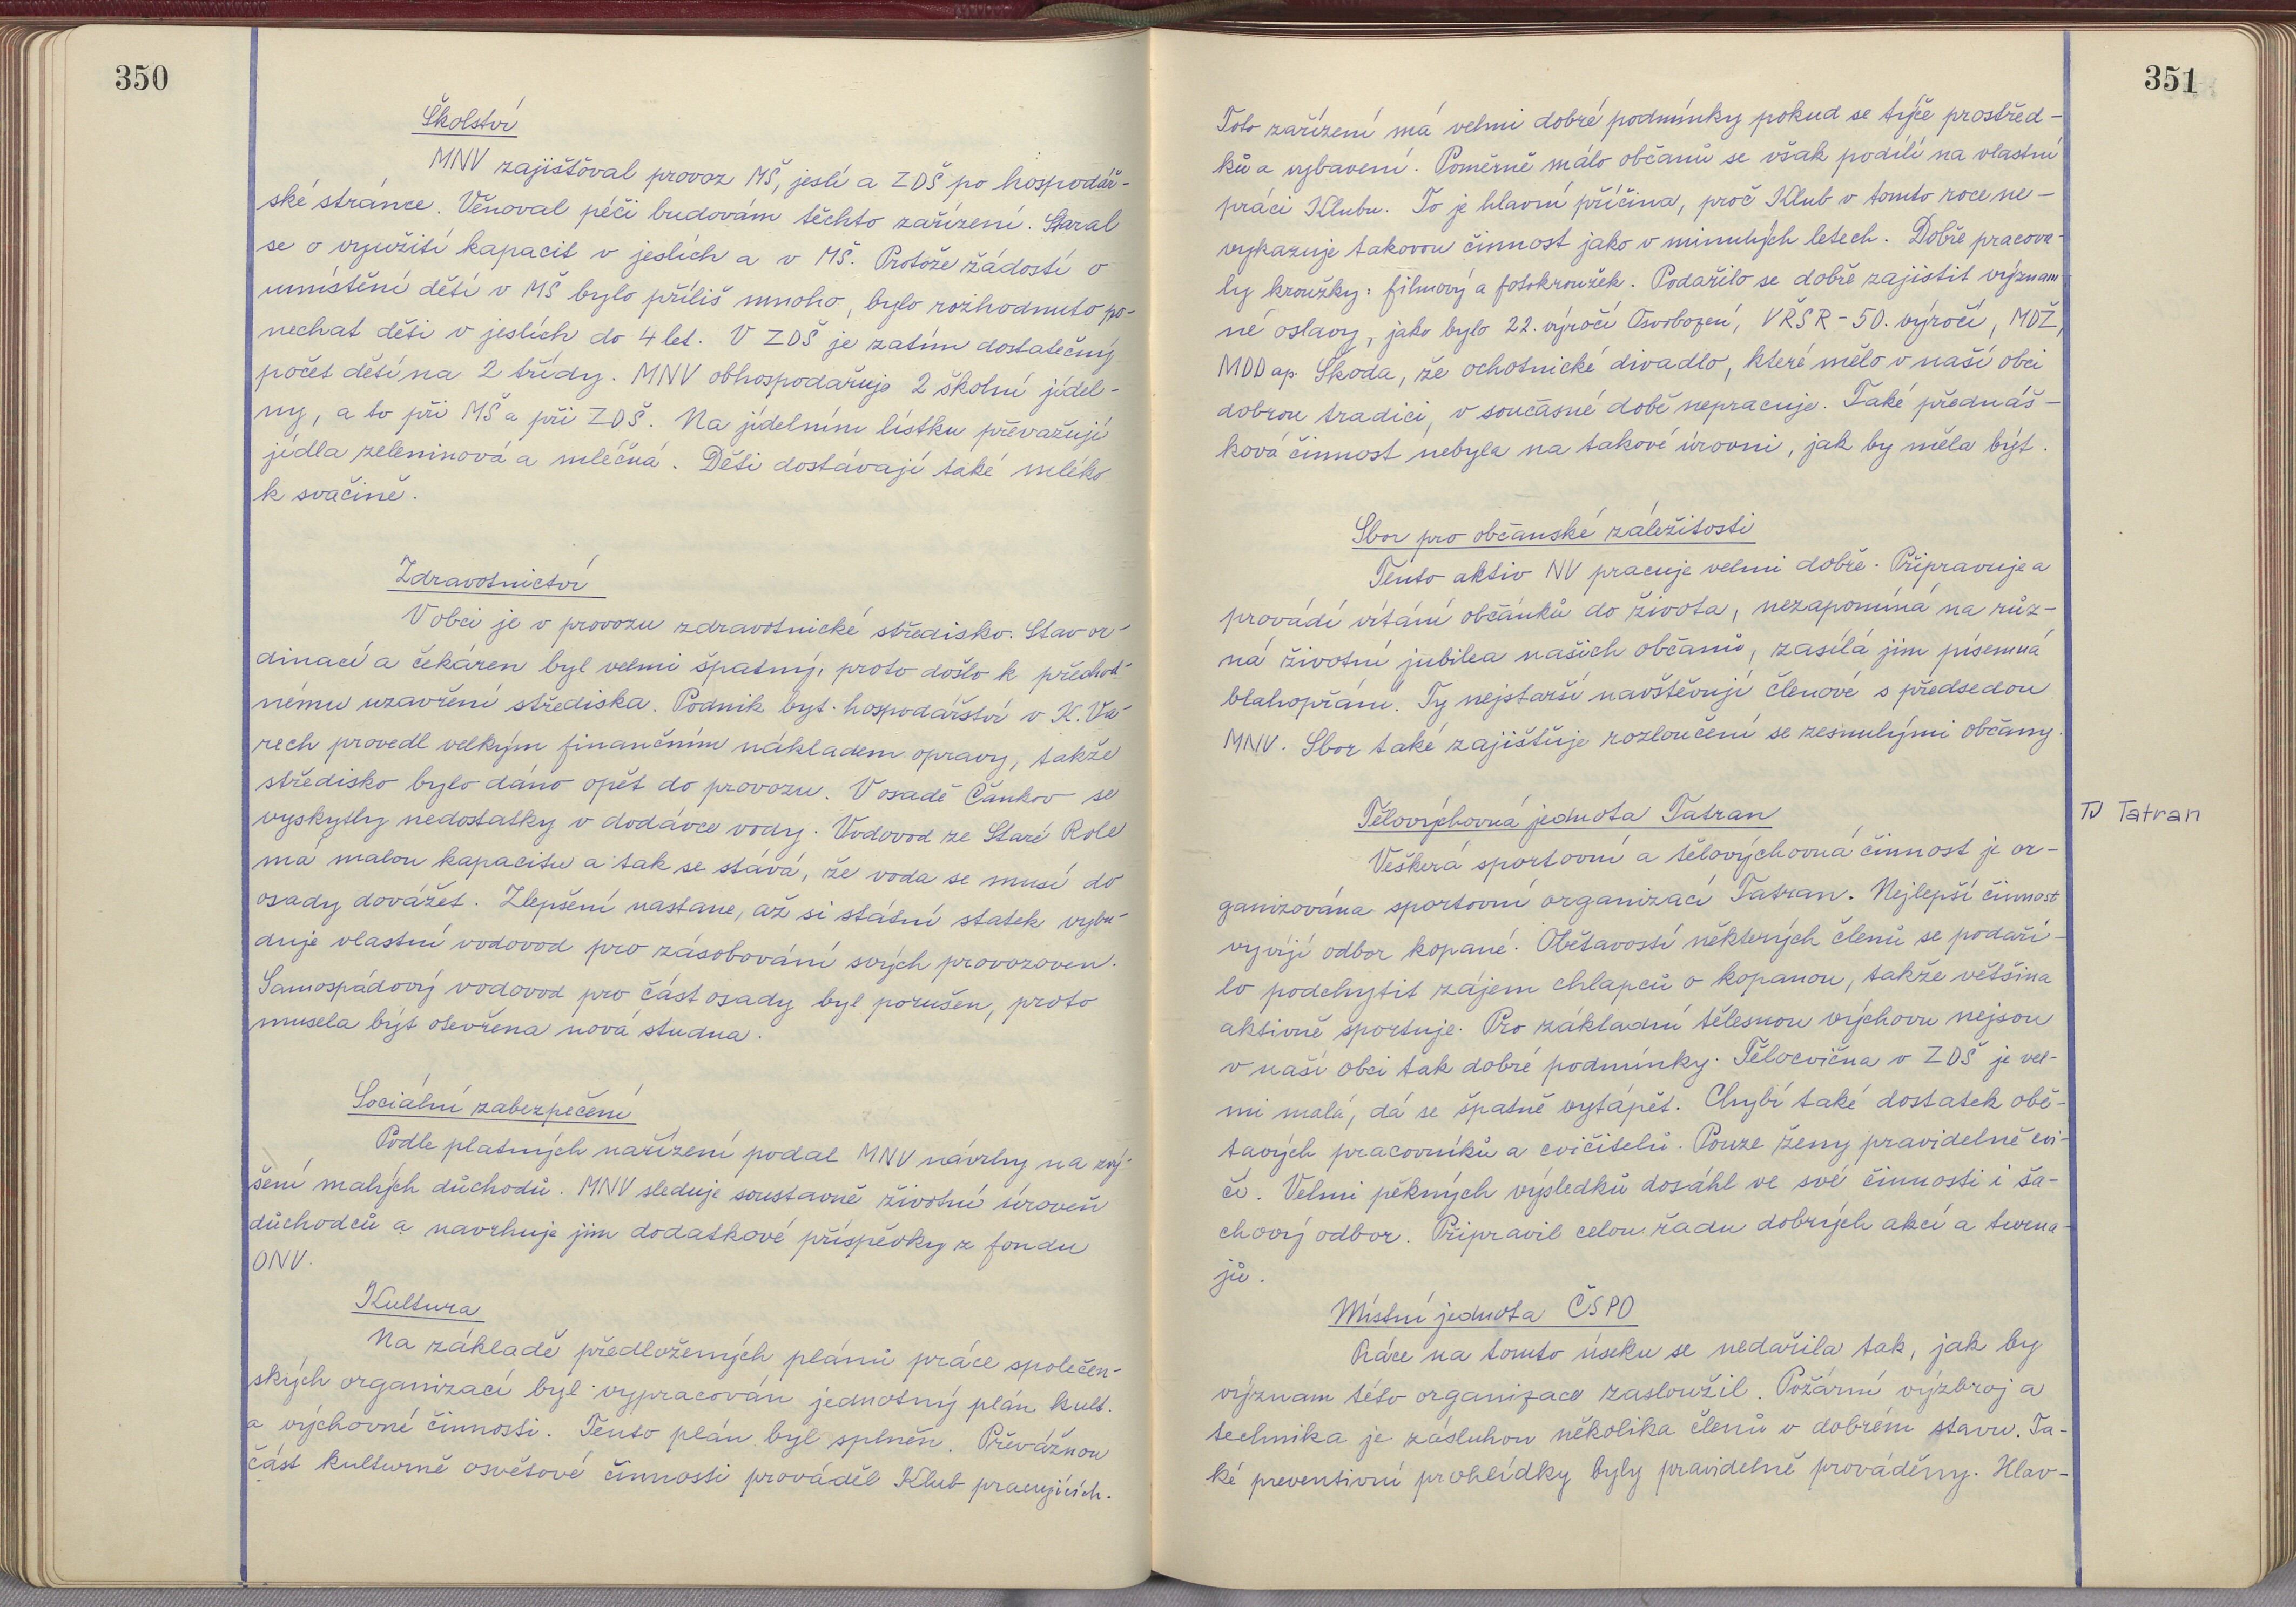 350
Školství
MNV zajištoval provoz MŠ, jeslí a ZDŠ po hospodář-
ské stránce. Věnoval péči budovám těchto zařízení. Staral
se o využití kapacit v jeslích a v MŠ. Protože žádostí o
umístění dětí v MŠ bylo příliš mnoho, bylo rozhodnuto po-
nechat děti v jeslích do 4 let. V ZDŠ je zatím dostatečný
počet dětí na 2 třídy. MNV obhospodařuje 2 školní jídel-
ny, a to při MŠ a při ZDŠ. Na jídelním lístku převažují
jídla zeleninová a mléčná. Děti dostávají také mléko
k svačině.
Zdravotnictví
V obci je v provozu zdravotnické středisko. Stav or-
dinací a čekáren byl velmi špatný, proto došlo k přechod-
nému uzavření střediska. Podnik byt. hospodářství v K. Va-
rech provedl velkým finančním nákladem opravy, takže
středisko bylo dáno opět do provozu. V osadě Čankov se
vyskytly nedostatky v dodávce vody. Vodovod ze Staré Role
má malou kapacitu a tak se stává, že voda se musí do
osady dovážet. Zlepšení nastane, až si státní statek vybu-
duje vlastní vodovod pro zásobování svých provozoven.
Samospádový vodovod pro část osady byl porušen, proto
musela být otevřena nová studna.
Sociální zabezpečení
Podle platných nařízení podal MNV návrhy na zvý-
šení malých důchodů. MNV sleduje soustavně životní úroveň
důchodců a navrhuje jim dodatkové příspěvky z fondu
ONV.
Kultura
Na základě předložených plánů práce společen-
ských organizací byl vypracován jednotný plán kult.
a výchovné činnosti. Tento plán byl splněn. Převážnou
část kulturně osvětové činnosti prováděl Klub pracujících.
351
Toto zařízení má velmi dobré podmínky pokud se týče prostřed-
ků a vybavení. Poměrně málo občanů se však podílí na vlastní
práci Klubu. To je hlavní příčina, proč Klub v tomto roce ne-
vykazuje takovou činnost jako v minulých letech. Dobře pracova-
ly kroužky: filmový a fotokroužek. Podařilo se dobře zajistit význam-
né oslavy, jako bylo 22. výročí Osvobození, VŘSR - 50. výročí, MDŽ,
MDD ap. Škoda, že ochotnické divadlo, které mělo v naší obci
dobrou tradici, v současné době nepracuje. Také přednáš-
ková činnost nebyla na takové úrovni, jak by měla být.
Sbor pro občanské záležitosti
Tento aktiv NV pracuje velmi dobře. Připravuje a
provádí vítání občánků do života, nezapomíná na růz-
ná životní jubilea našich občanů, zasílá jim písemná
blahopřání. Ty nejstarší navštěvují členové s předsedou
MNV. Sbor také zajištuje rozloučení se zesnulými občany.
Tělovýchovná jednota Tatran
TJ Tatran
Veškerá sportovní a tělovýchovná činnost je or-
ganizována sportovní organizací Tatran. Nejlepší činnost
vyvíjí odbor kopané. Obětavostí některých členů se podaři-
lo podchytit zájem chlapců o kopanou, takže většina
aktivně sportuje. Pro základní tělesnou výchovu nejsou
v naší obci tak dobré podmínky. Tělocvična v ZDŠ je vel-
mi malá, dá se špatně vytápět. Chybí také dostatek obě-
tavých pracovníků a cvičitelů. Pouze ženy pravidelně cvi-
čí. Velmi pěkných výsledků dosáhl ve své činnosti i ša-
chový odbor. Připravil celou řadu dobrých akcí a turna-
jů.
Místní jednota ČSPO
Práce na tomto úseku se nedařila tak, jak by
význam této organizace zasloužil. Požární výzbroj a
technika je zásluhou několika členů v dobrém stavu. Ta-
ké preventivní prohlídky byly pravidelně prováděny. Hlav-